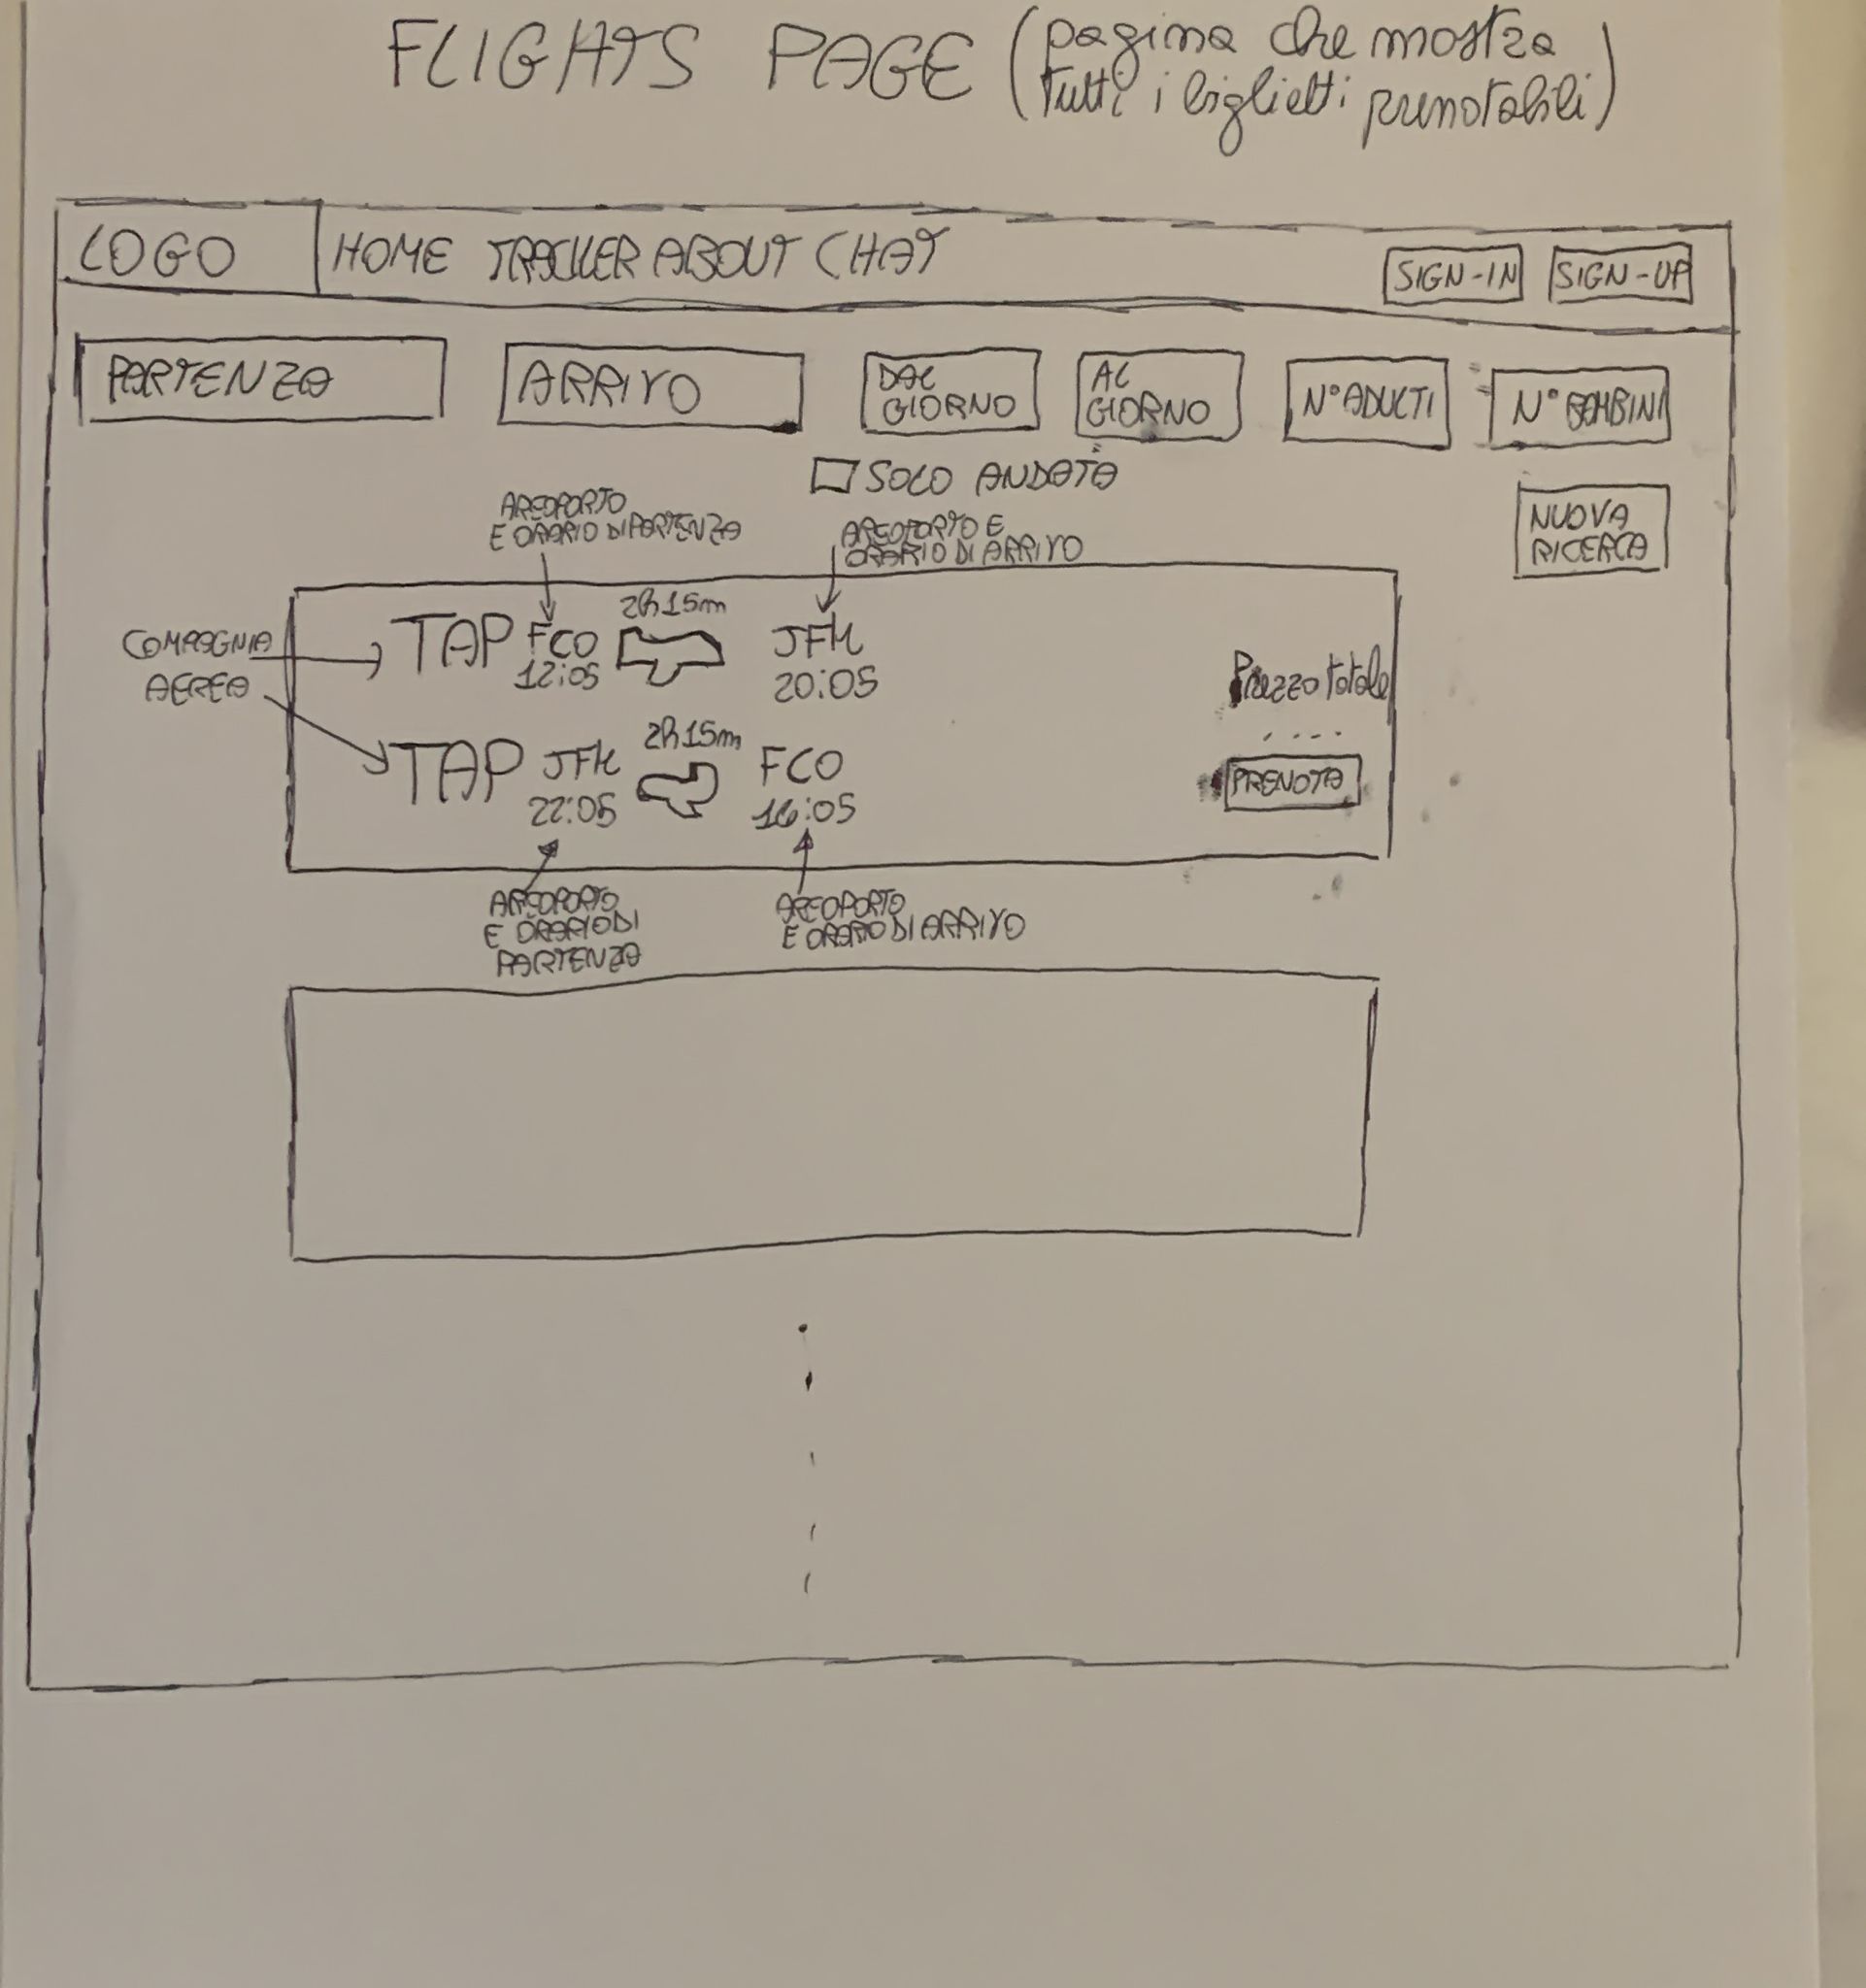 FLIGHTS PAGE (pagina che mostra
tutti i biglietti prenotabili)
LOGO HOME TRACKER ABOUT CHAT SIGN-IN SIGN-UP
PARTENZA ARRIVO DAL GIORNO AL GIORNO N° ADULTI N° BAMBINI
SOLO ANDATA
NUOVA
RICERCA
AREOPORTO
E ORARIO DI PARTENZA
AREOPORTO E
ORARIO DI ARRIVO
COMPAGNIA
AEREA
TAP FCO 2h15m JFK
12:05 20:05
Prezzo totale
....
TAP JFK 2h15m FCO
22:05 16:05
PRENOTA
AREOPORTO
E ORARIO DI
PARTENZA
AREOPORTO
E ORARIO DI ARRIVO